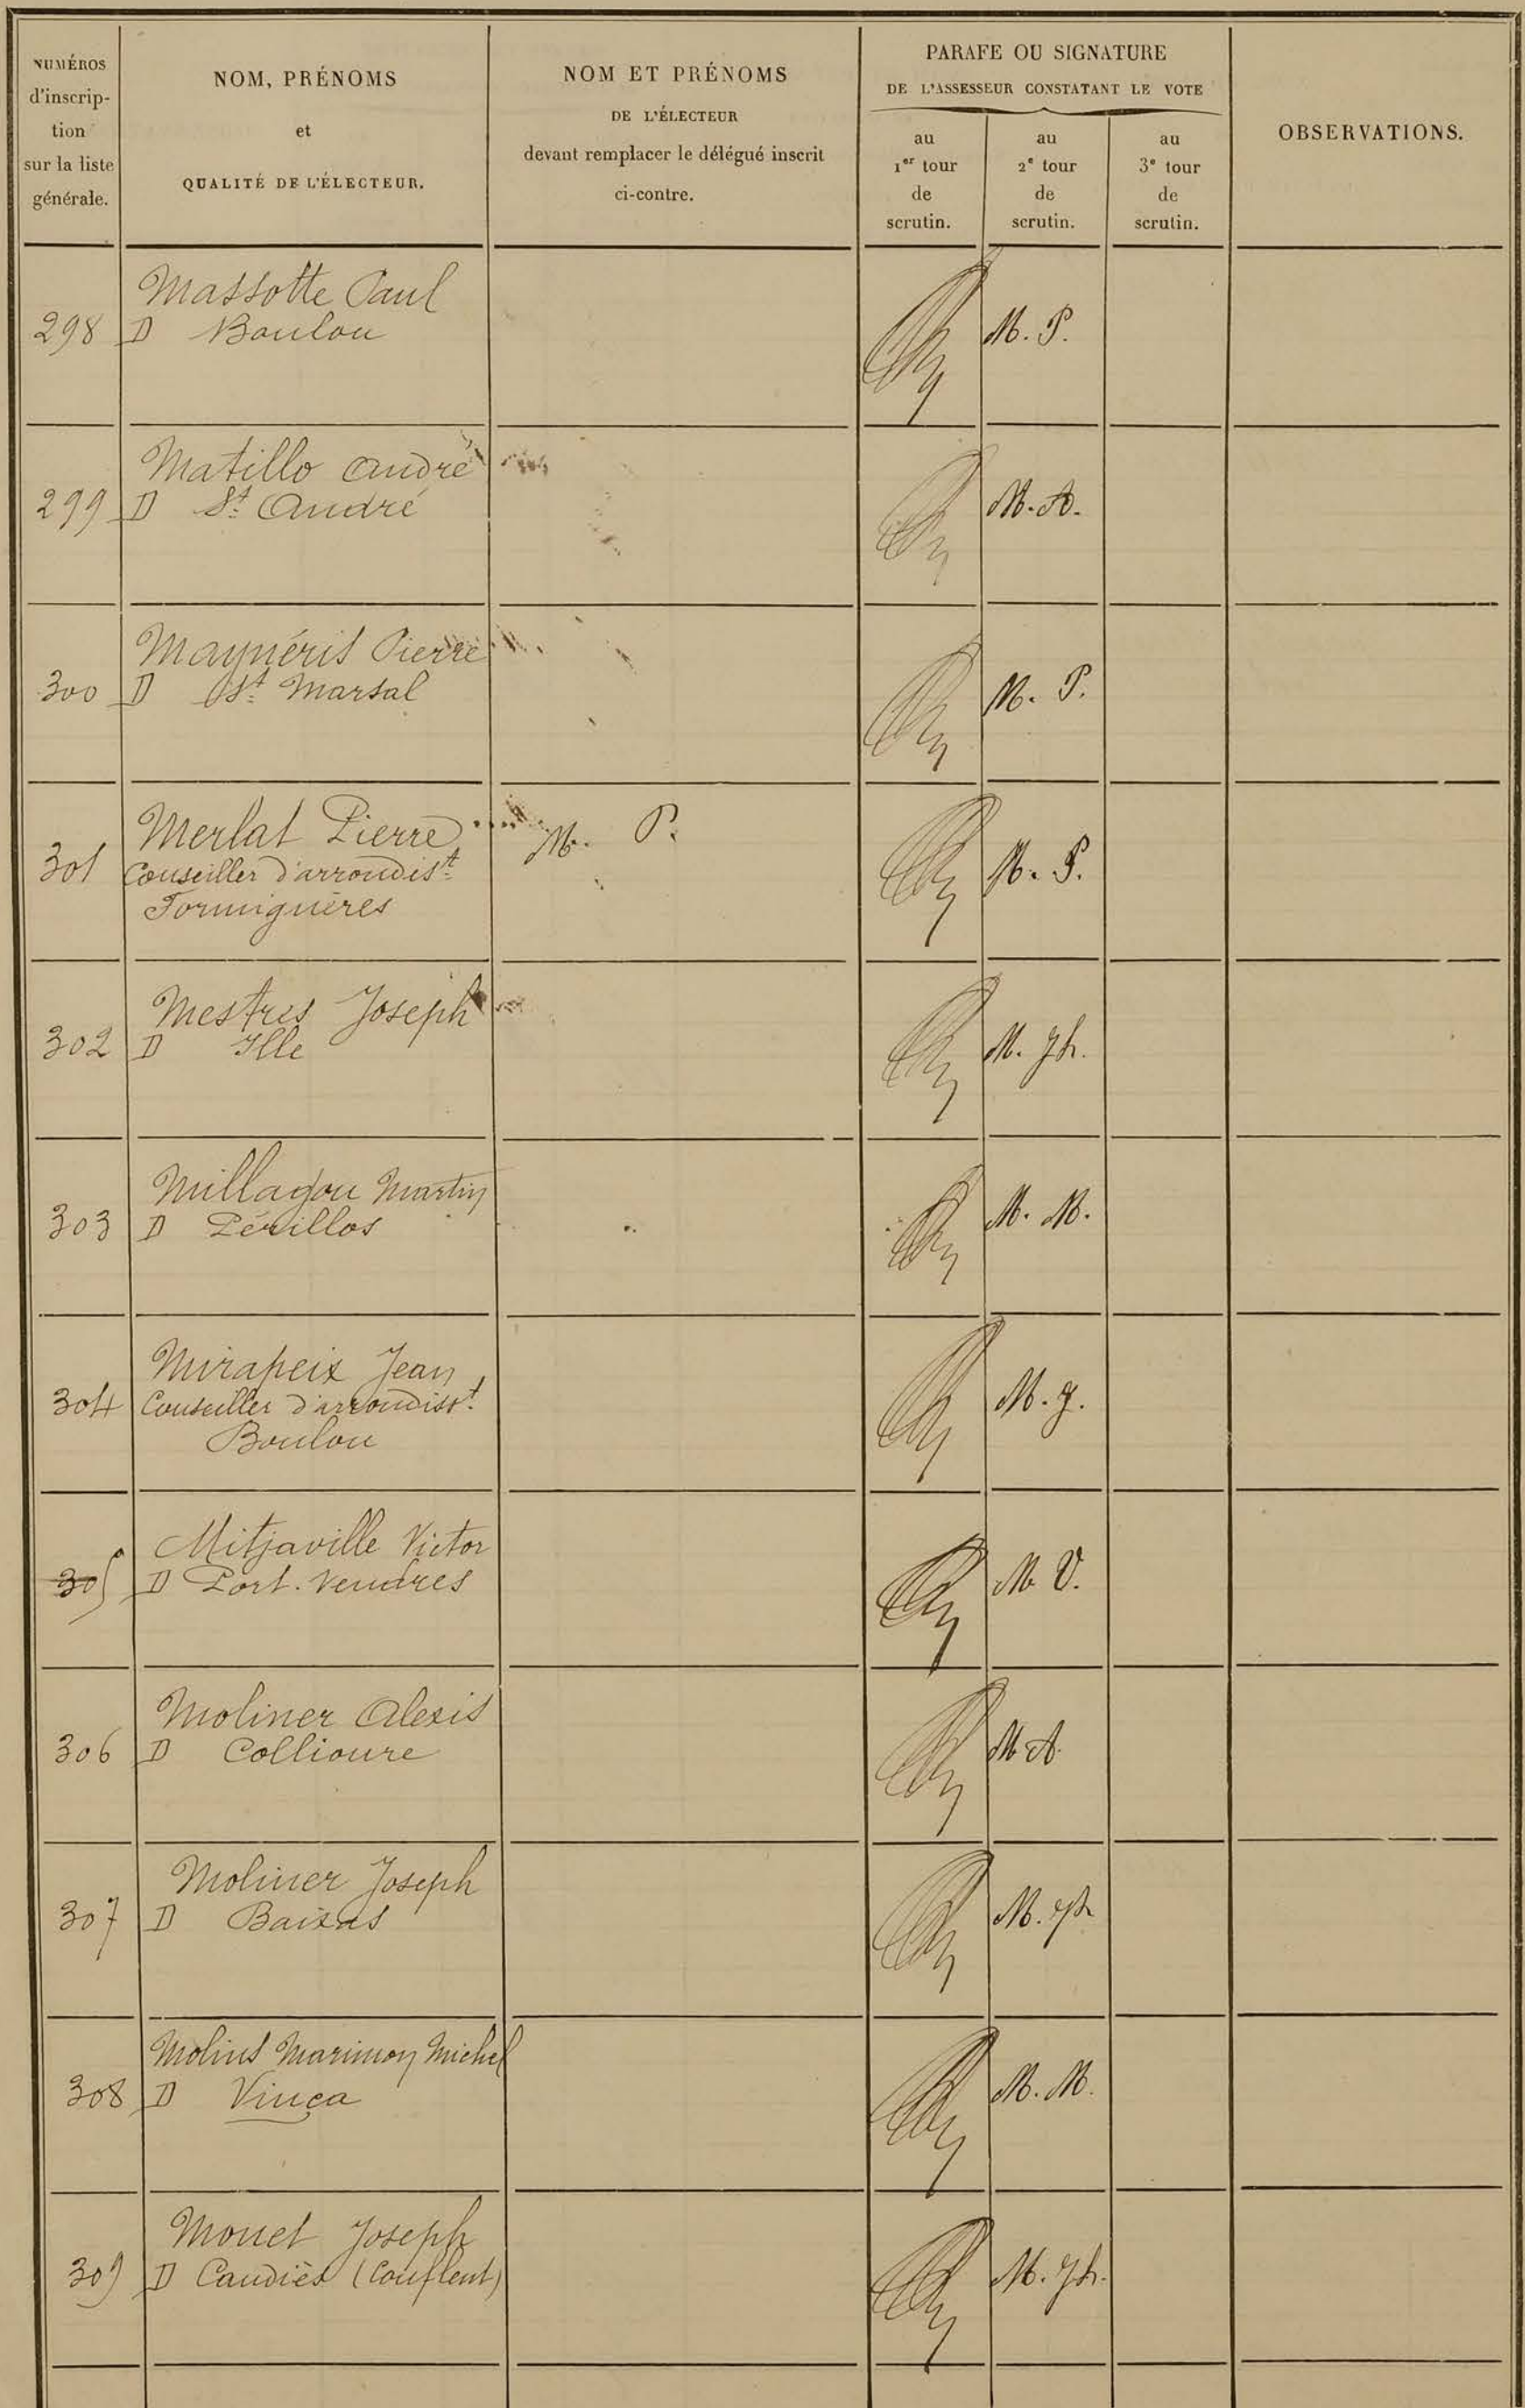 NUMÉROS
d'inscrip-
tion
sur la liste
générale.
NOM, PRÉNOMS
et
QUALITÉ DE L'ÉLECTEUR.
NOM ET PRÉNOMS
DE L'ÉLECTEUR
devant remplacer le délégué inscrit
ci-contre.
PARAFE OU SIGNATURE
DE L'ASSESSEUR CONSTATANT LE VOTE
au
1er tour
de
scrutin.
au
2e tour
de
scrutin.
au
3e tour
de
scrutin.
OBSERVATIONS.
Massotte Paul
298 D Boulou M. P.
Matillo André
299 D St André M. A.
Maynéris Pierre
300 D St Marsal M. P.
Merlat Pierre M. P.
301 Conseiller d'arrondist M. P.
Formiguères
Mestres Joseph
302 D Ille M. Jh.
Millagou Martin
303 D Périllos M. M.
Mirapeix Jean
304 Conseiller d'arrondisst M. J.
Boulou
Mitjaville Victor
305 D Port. Vendres M V.
Moliner Alexis
306 D Collioure M A.
Moliner Joseph
307 D Baixas M. Jh
Molins Marimon Michel
308 D Vinça M. M.
Monet Joseph
309 D Caudiès (Conflent) M. Jh.